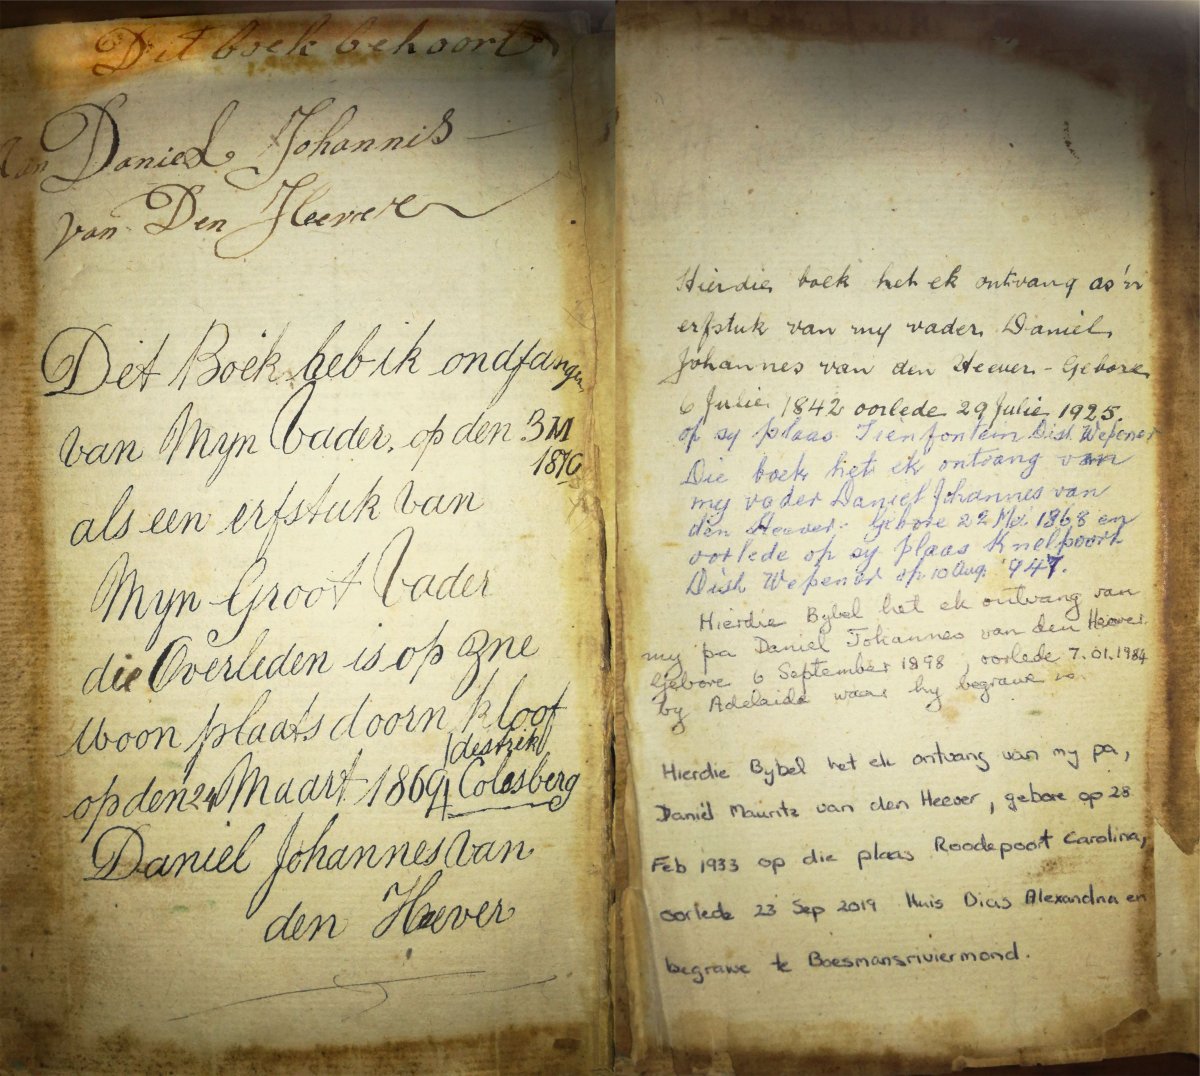 Dit boek behoort
van Daniel Johannis
van Den Heever
Dit Boek heb ik ondfangen
van Mijn Vader, op den 3 M
1876
als een erfstuk van
Myn Groot Vader
die Overleden is op zne
woon plaats doorn kloof
destrik
op den 24 Maart 1869 Colesberg
Daniel Johannes van
den Heever
Hierdie boek het ek ontvang as 'n
erfstuk van my vader Daniel
Johannes van den Heever - Gebore
6 Julie 1842 oorlede 29 Julie 1925.
op sy plaas Tienfontein Dist. Wepener
Die boek het ek ontvang van
my vader Daniel Johannes van
den Heever - Gebore 22 Mei 1868 en
oorlede op sy plaas Knelpoort
Dist. Wepener op 10 Aug. 947.
Hierdie Bybel het ek ontvang van
my pa Daniel Johannes van den Heever.
Gebore 6 September 1898, oorlede 7.01.1984
by Adelaide waar hy begrawe is
Hierdie Bybel het ek ontvang van my pa,
Daniël Mauritz van den Heever, gebore op 28
Feb 1933 op die plaas Roodepoort Carolina,
oorlede 23 Sep 2019 Huis Dias Alexandria en
begrawe te Boesmansriviermond.